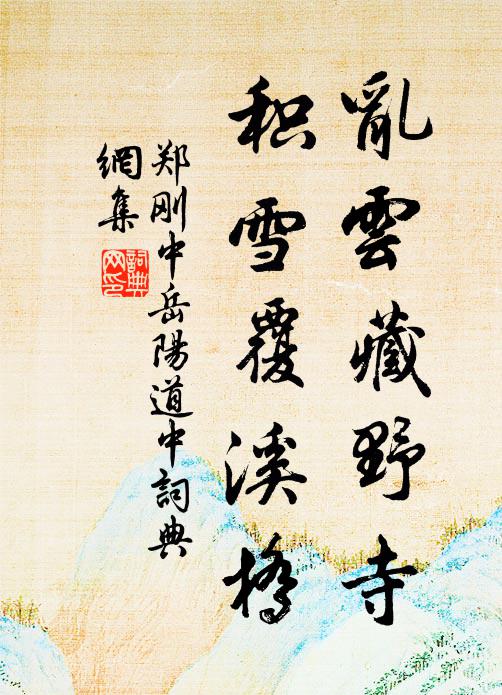 亂雲藏野寺
积雪覆溪橋
郑刚中岳陽道中詞典
網集
詞典
网印